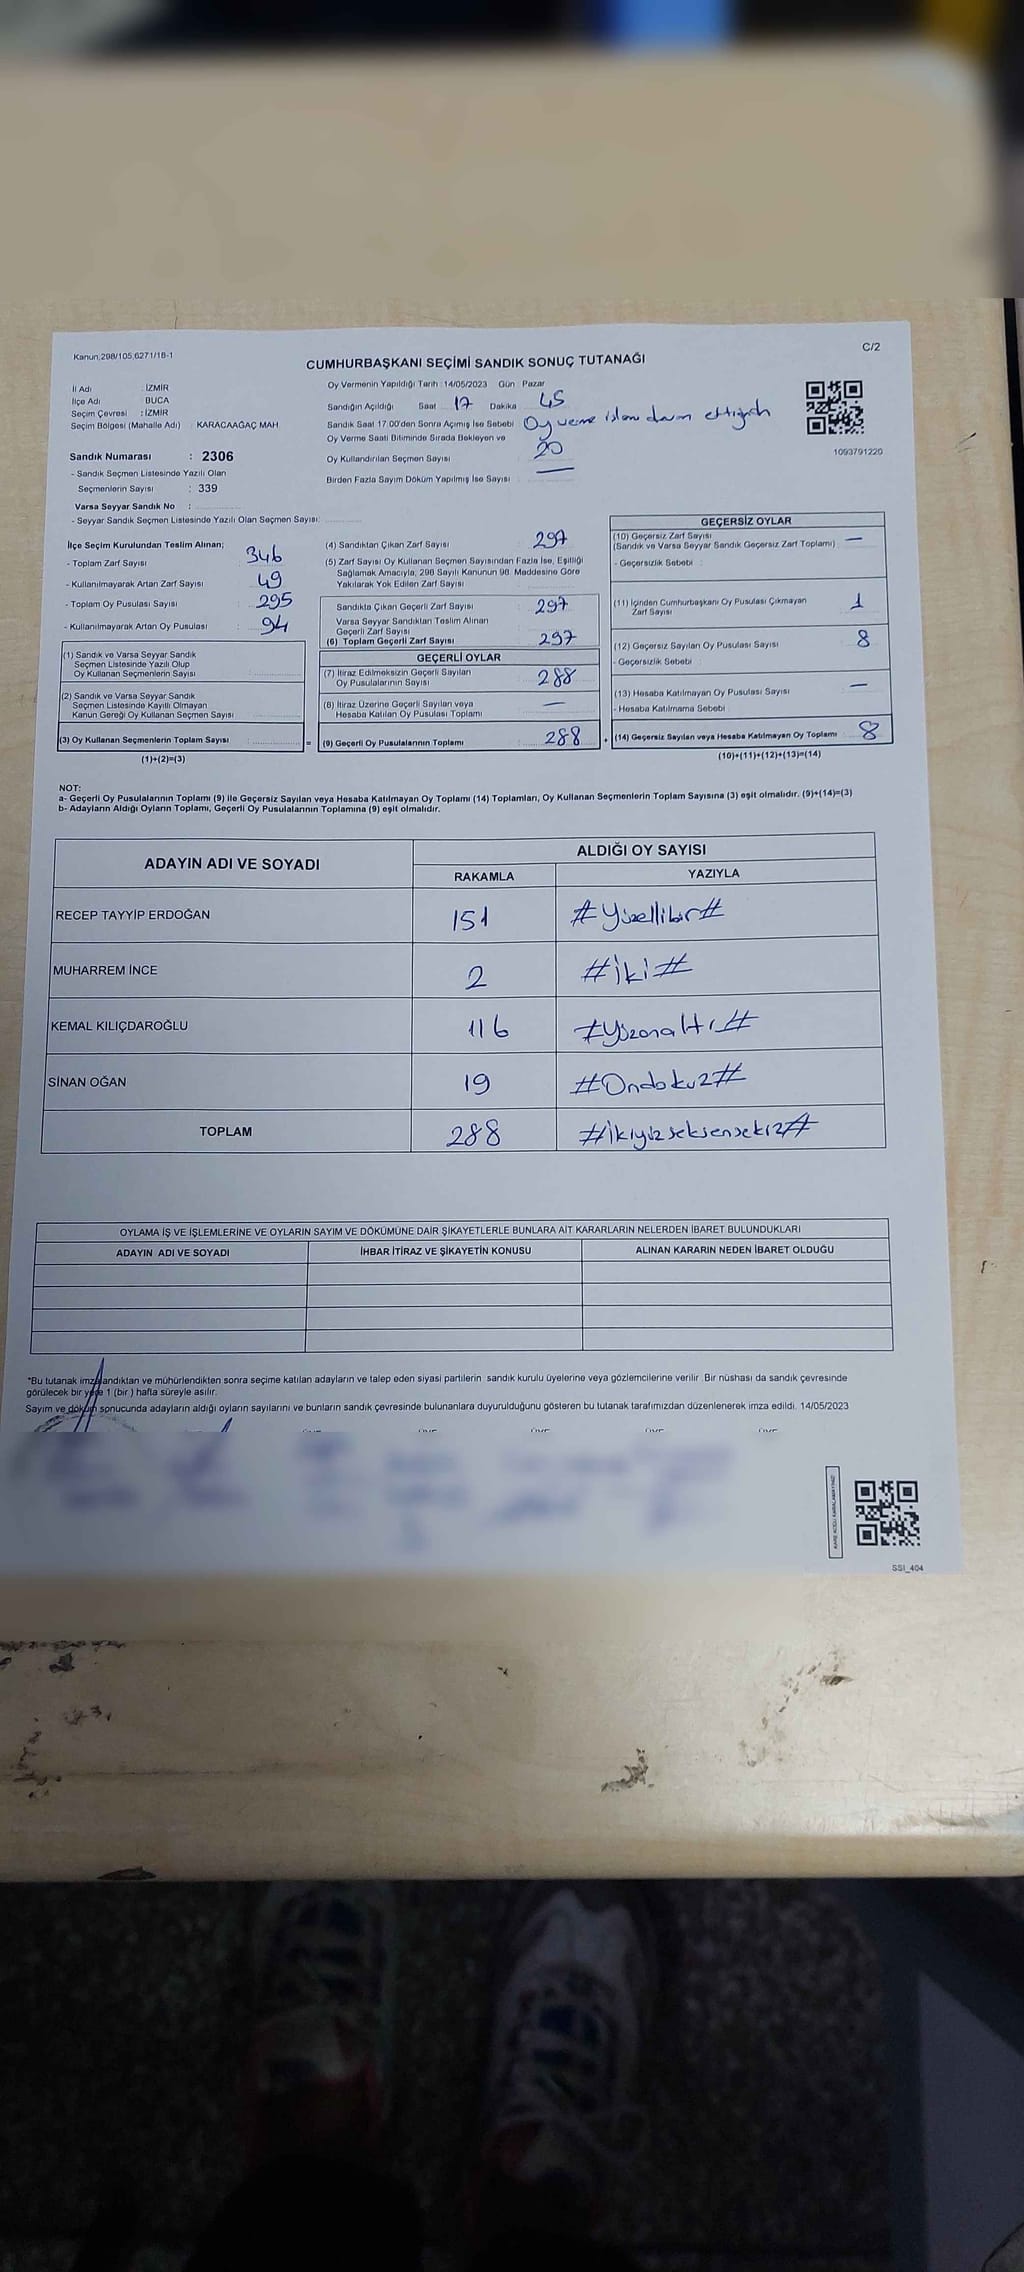 Kanun;298/105,6271/18-1
C/2
CUMHURBAŞKANI SEÇİMİ SANDIK SONUÇ TUTANAĞI
İl Adı : İZMİR
İlçe Adı : BUCA
Seçim Çevresi : İZMİR
Seçim Bölgesi (Mahalle Adı) : KARACAAĞAÇ MAH
Sandık Numarası : 2306
- Sandık Seçmen Listesinde Yazılı Olan
Seçmenlerin Sayısı : 339
Varsa Seyyar Sandık No :
- Seyyar Sandık Seçmen Listesinde Yazılı Olan Seçmen Sayısı:
Oy Vermenin Yapıldığı Tarih : 14/05/2023 Gün : Pazar
Sandığın Açıldığı Saat 17 Dakika 45
Sandık Saat 17.00'den Sonra Açımış İse Sebebi Oy verme işlemi devam ettiğinden
Oy Verme Saati Bitiminde Sırada Bekleyen ve
Oy Kullandırılan Seçmen Sayısı 20
Birden Fazla Sayım Döküm Yapılmış İse Sayısı : —
1093791220
İlçe Seçim Kurulundan Teslim Alınan;
- Toplam Zarf Sayısı : 346
- Kullanılmayarak Artan Zarf Sayısı : 49
- Toplam Oy Pusulası Sayısı : 295
- Kullanılmayarak Artan Oy Pusulası : 94
(1) Sandık ve Varsa Seyyar Sandık
Seçmen Listesinde Yazılı Olup
Oy Kullanan Seçmenlerin Sayısı :
(2) Sandık ve Varsa Seyyar Sandık
Seçmen Listesinde Kayıtlı Olmayan
Kanun Gereği Oy Kullanan Seçmen Sayısı :
(3) Oy Kullanan Seçmenlerin Toplam Sayısı :
(1)+(2)=(3)
(4) Sandıktan Çıkan Zarf Sayısı : 297
(5) Zarf Sayısı Oy Kullanan Seçmen Sayısından Fazla İse, Eşitliği
Sağlamak Amacıyla, 298 Sayılı Kanunun 98. Maddesine Göre
Yakılarak Yok Edilen Zarf Sayısı
Sandıkta Çıkan Geçerli Zarf Sayısı : 297
Varsa Seyyar Sandıktan Teslim Alınan
Geçerli Zarf Sayısı
(6) Toplam Geçerli Zarf Sayısı : 297
GEÇERLİ OYLAR
(7) İtiraz Edilmeksizin Geçerli Sayılan
Oy Pusulalarının Sayısı : 288
(8) İtiraz Üzerine Geçerli Sayılan veya
Hesaba Katılan Oy Pusulası Toplamı : —
= (9) Geçerli Oy Pusulalarının Toplamı : 288
GEÇERSİZ OYLAR
(10) Geçersiz Zarf Sayısı
(Sandık ve Varsa Seyyar Sandık Geçersiz Zarf Toplamı) : —
- Geçersizlik Sebebi :
(11) İçinden Cumhurbaşkanı Oy Pusulası Çıkmayan
Zarf Sayısı : 1
(12) Geçersiz Sayılan Oy Pusulası Sayısı : 8
- Geçersizlik Sebebi :
(13) Hesaba Katılmayan Oy Pusulası Sayısı : —
- Hesaba Katılmama Sebebi :
+ (14) Geçersiz Sayılan veya Hesaba Katılmayan Oy Toplamı : 8
(10)+(11)+(12)+(13)=(14)
NOT:
a- Geçerli Oy Pusulalarının Toplamı (9) ile Geçersiz Sayılan veya Hesaba Katılmayan Oy Toplamı (14) Toplamları, Oy Kullanan Seçmenlerin Toplam Sayısına (3) eşit olmalıdır. (9)+(14)=(3)
b- Adayların Aldığı Oyların Toplamı, Geçerli Oy Pusulalarının Toplamına (9) eşit olmalıdır.
ADAYIN ADI VE SOYADI ALDIĞI OY SAYISI
RAKAMLA YAZIYLA
RECEP TAYYİP ERDOĞAN 151 #Yüzellibir#
MUHARREM İNCE 2 #İki#
KEMAL KILIÇDAROĞLU 116 #Yüzonaltı#
SİNAN OĞAN 19 #Ondokuz#
TOPLAM 288 #İkiyüzseksensekiz#
OYLAMA İŞ VE İŞLEMLERİNE VE OYLARIN SAYIM VE DÖKÜMÜNE DAİR ŞİKAYETLERLE BUNLARA AİT KARARLARIN NELERDEN İBARET BULUNDUKLARI
ADAYIN ADI VE SOYADI İHBAR İTİRAZ VE ŞİKAYETİN KONUSU ALINAN KARARIN NEDEN İBARET OLDUĞU
*Bu tutanak imzalandıktan ve mühürlendikten sonra seçime katılan adayların ve talep eden siyasi partilerin sandık kurulu üyelerine veya gözlemcilerine verilir. Bir nüshası da sandık çevresinde
görülecek bir yere 1 (bir ) hafta süreyle asılır.
Sayım ve döküm sonucunda adayların aldığı oyların sayılarını ve bunların sandık çevresinde bulunanlara duyurulduğunu gösteren bu tutanak tarafımızdan düzenlenerek imza edildi. 14/05/2023
SSI_404